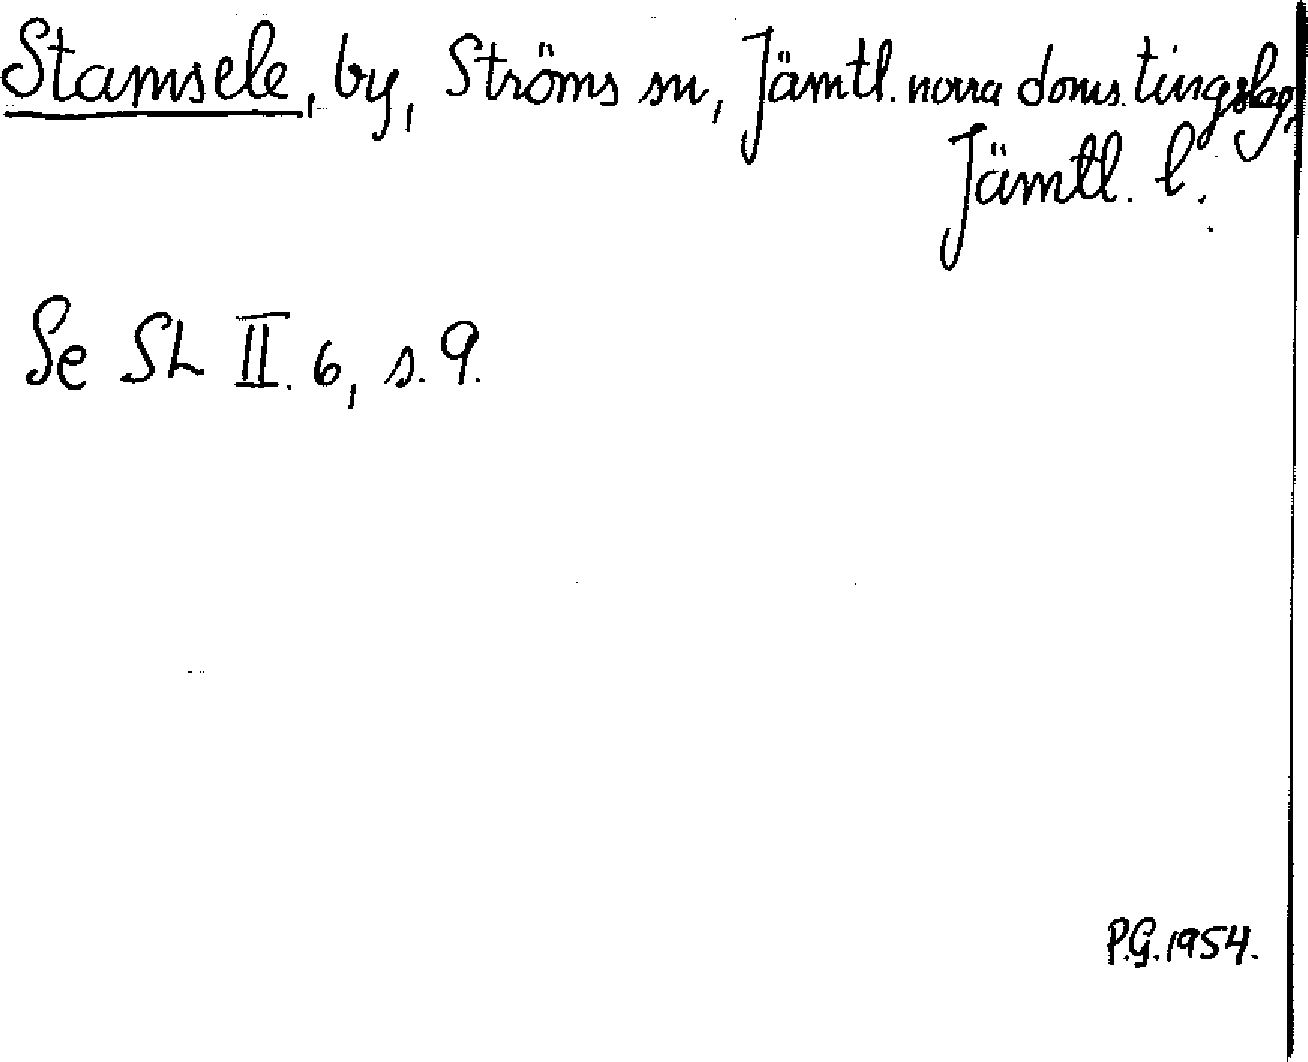 Stamsele, by, Ströms sn, Jämtl. norra doms. tingslag,
Jämtl. l.
Se SL II. 6, s. 9.
P.G. 1954.